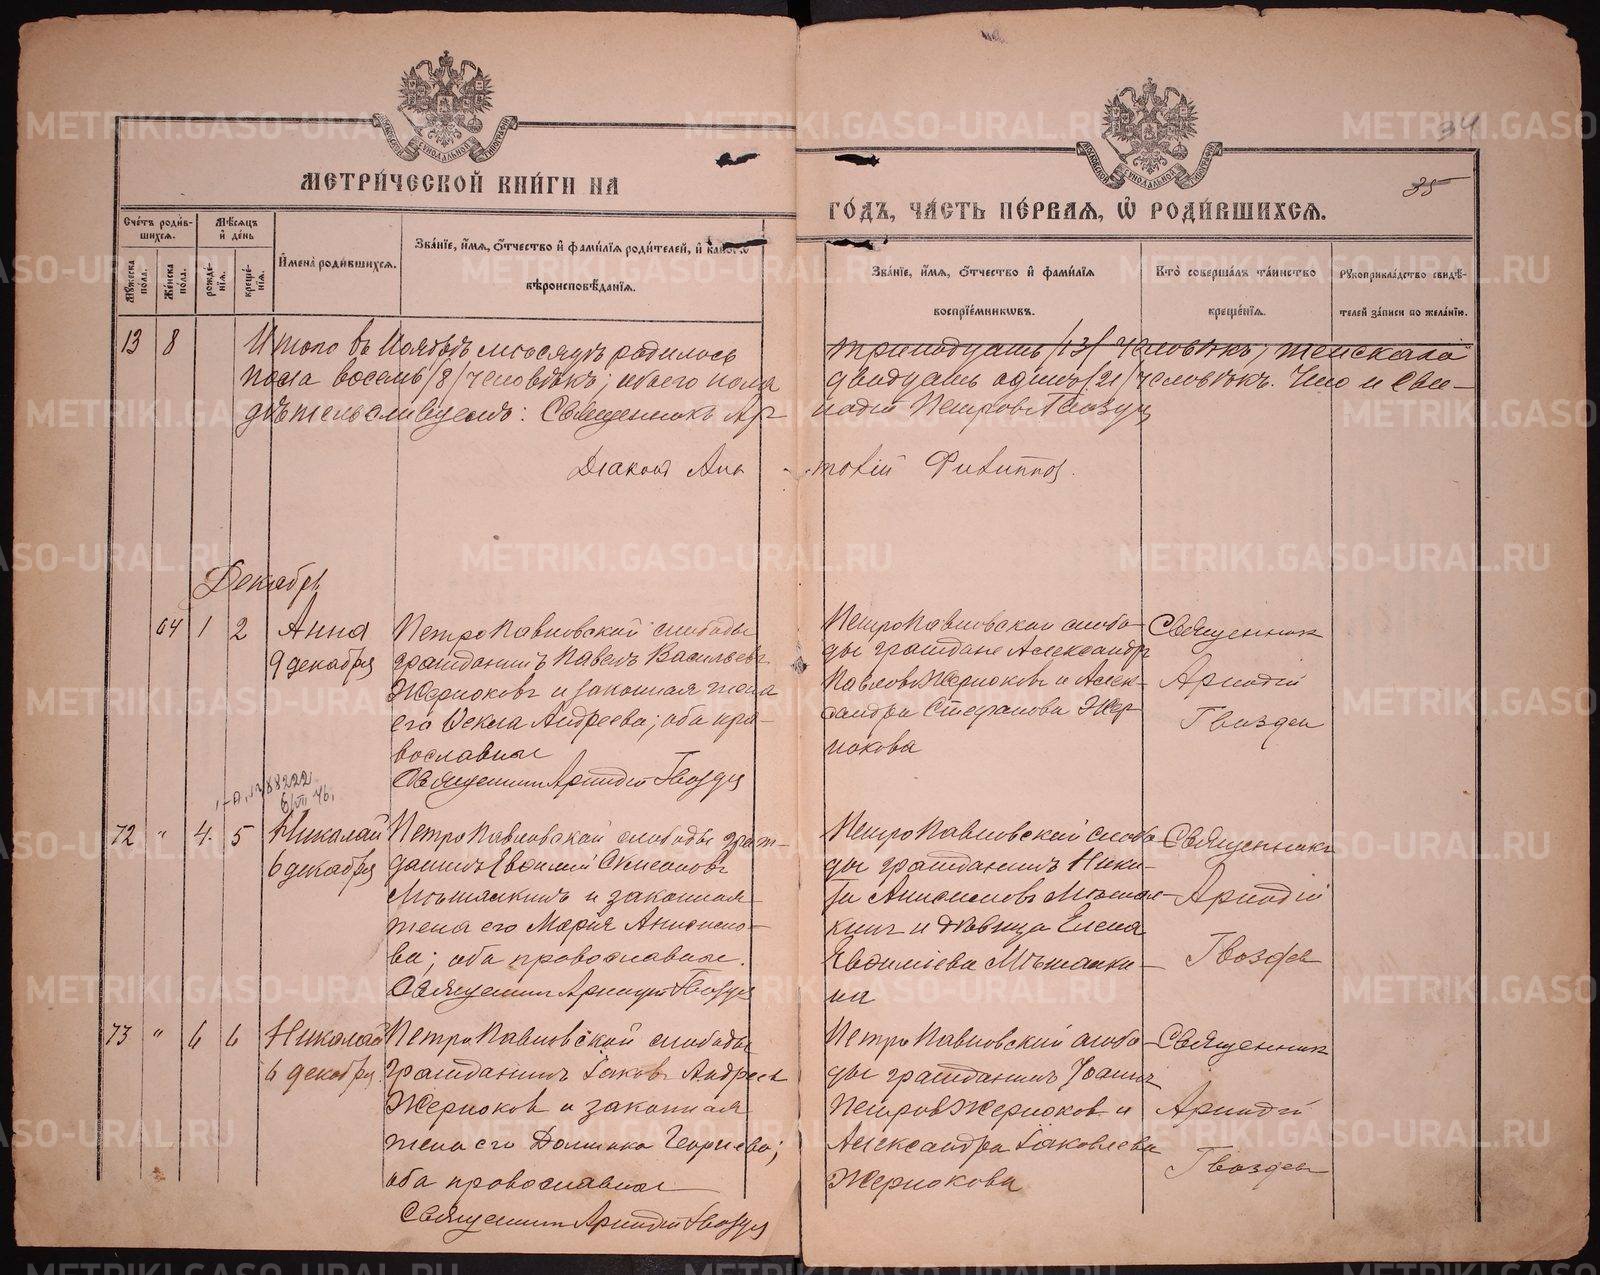 МЕТРИ́ЧЕСКОЙ КНИ́ГИ НА
ГО́ДЪ, ЧА́СТЬ ПЕ́РВАЯ, Ѡ РОДИ́ВШИХСЯ.
34
35
Сче́тъ роди́вшихся.
Му́жеска по́ла.
Же́нска по́ла.
Мѣ́сяцъ и де́нь
рожде́нія.
креще́нія.
И́мена̀ роди́вшихся.
Зва́ніе, и́мя, о́тчество и фами́лія роди́телей, и како́гѡ
вѣроисповѣ́данія.
Зва́ніе, и́мя, о́тчество и фами́лія
воспріе́мникѡвъ.
Кто̀ соверша́лъ та́инство
креще́нія.
Рꙋкоприкла́дство свидѣ́-
телей за́писи по жела́нію.
13 8
Итого въ Ноябрѣ мѣсяцѣ родилось
тринадцать /13/ человѣкъ; женскаго
пола восемь /8/ человѣкъ; обоего пола
двадцать одинъ /21/ человѣкъ. Что и сви-
дѣтельствуемъ: Священникъ Ар-
кадій Петровъ Гвоздев
Діаконъ Ана
толій Филиппов.
Декабрь
64 1 2
Анна
9 декабря
Петропавловской слободы
гражданинъ Павелъ Васильевъ
Жернаковъ и законная жена
его Ѳекла Андреева; оба пра-
вославные
Священник Аркадій Гвоздев
Петропавловской слобо-
ды граждане Александр
Павловъ Жернаковъ и Алек-
сандра Стефанова Жер
накова
Священник
Аркадій
Гвоздев
72 " 4. 5
Николай
6 декабря
Петропавловской слободы граж-
данинъ Евѳимій Симоновъ
и законная
жена его Марія
ва; оба православные.
Священник Аркадій Гвоздев
Петропавловской слобо
ды гражданинъ Ники-
та
и дѣвица Елена
Евѳиміева
на
Священникъ
Аркадій
Гвоздев
73 " 6 6
Николай
6 декабря.
Петропавловской слободы
гражданинъ Іаковъ Андреев
Жернаков и законная
жена его Домника Георгиева;
оба православные
Священник Аркадій Гвоздев
Петропавловской слобо
ды гражданинъ Іоаннъ
Петров Жернаков и
Александра Іаковлева
Жернакова
Священник
Аркадій
Гвоздев
METRIKI.GASO-URAL.RU